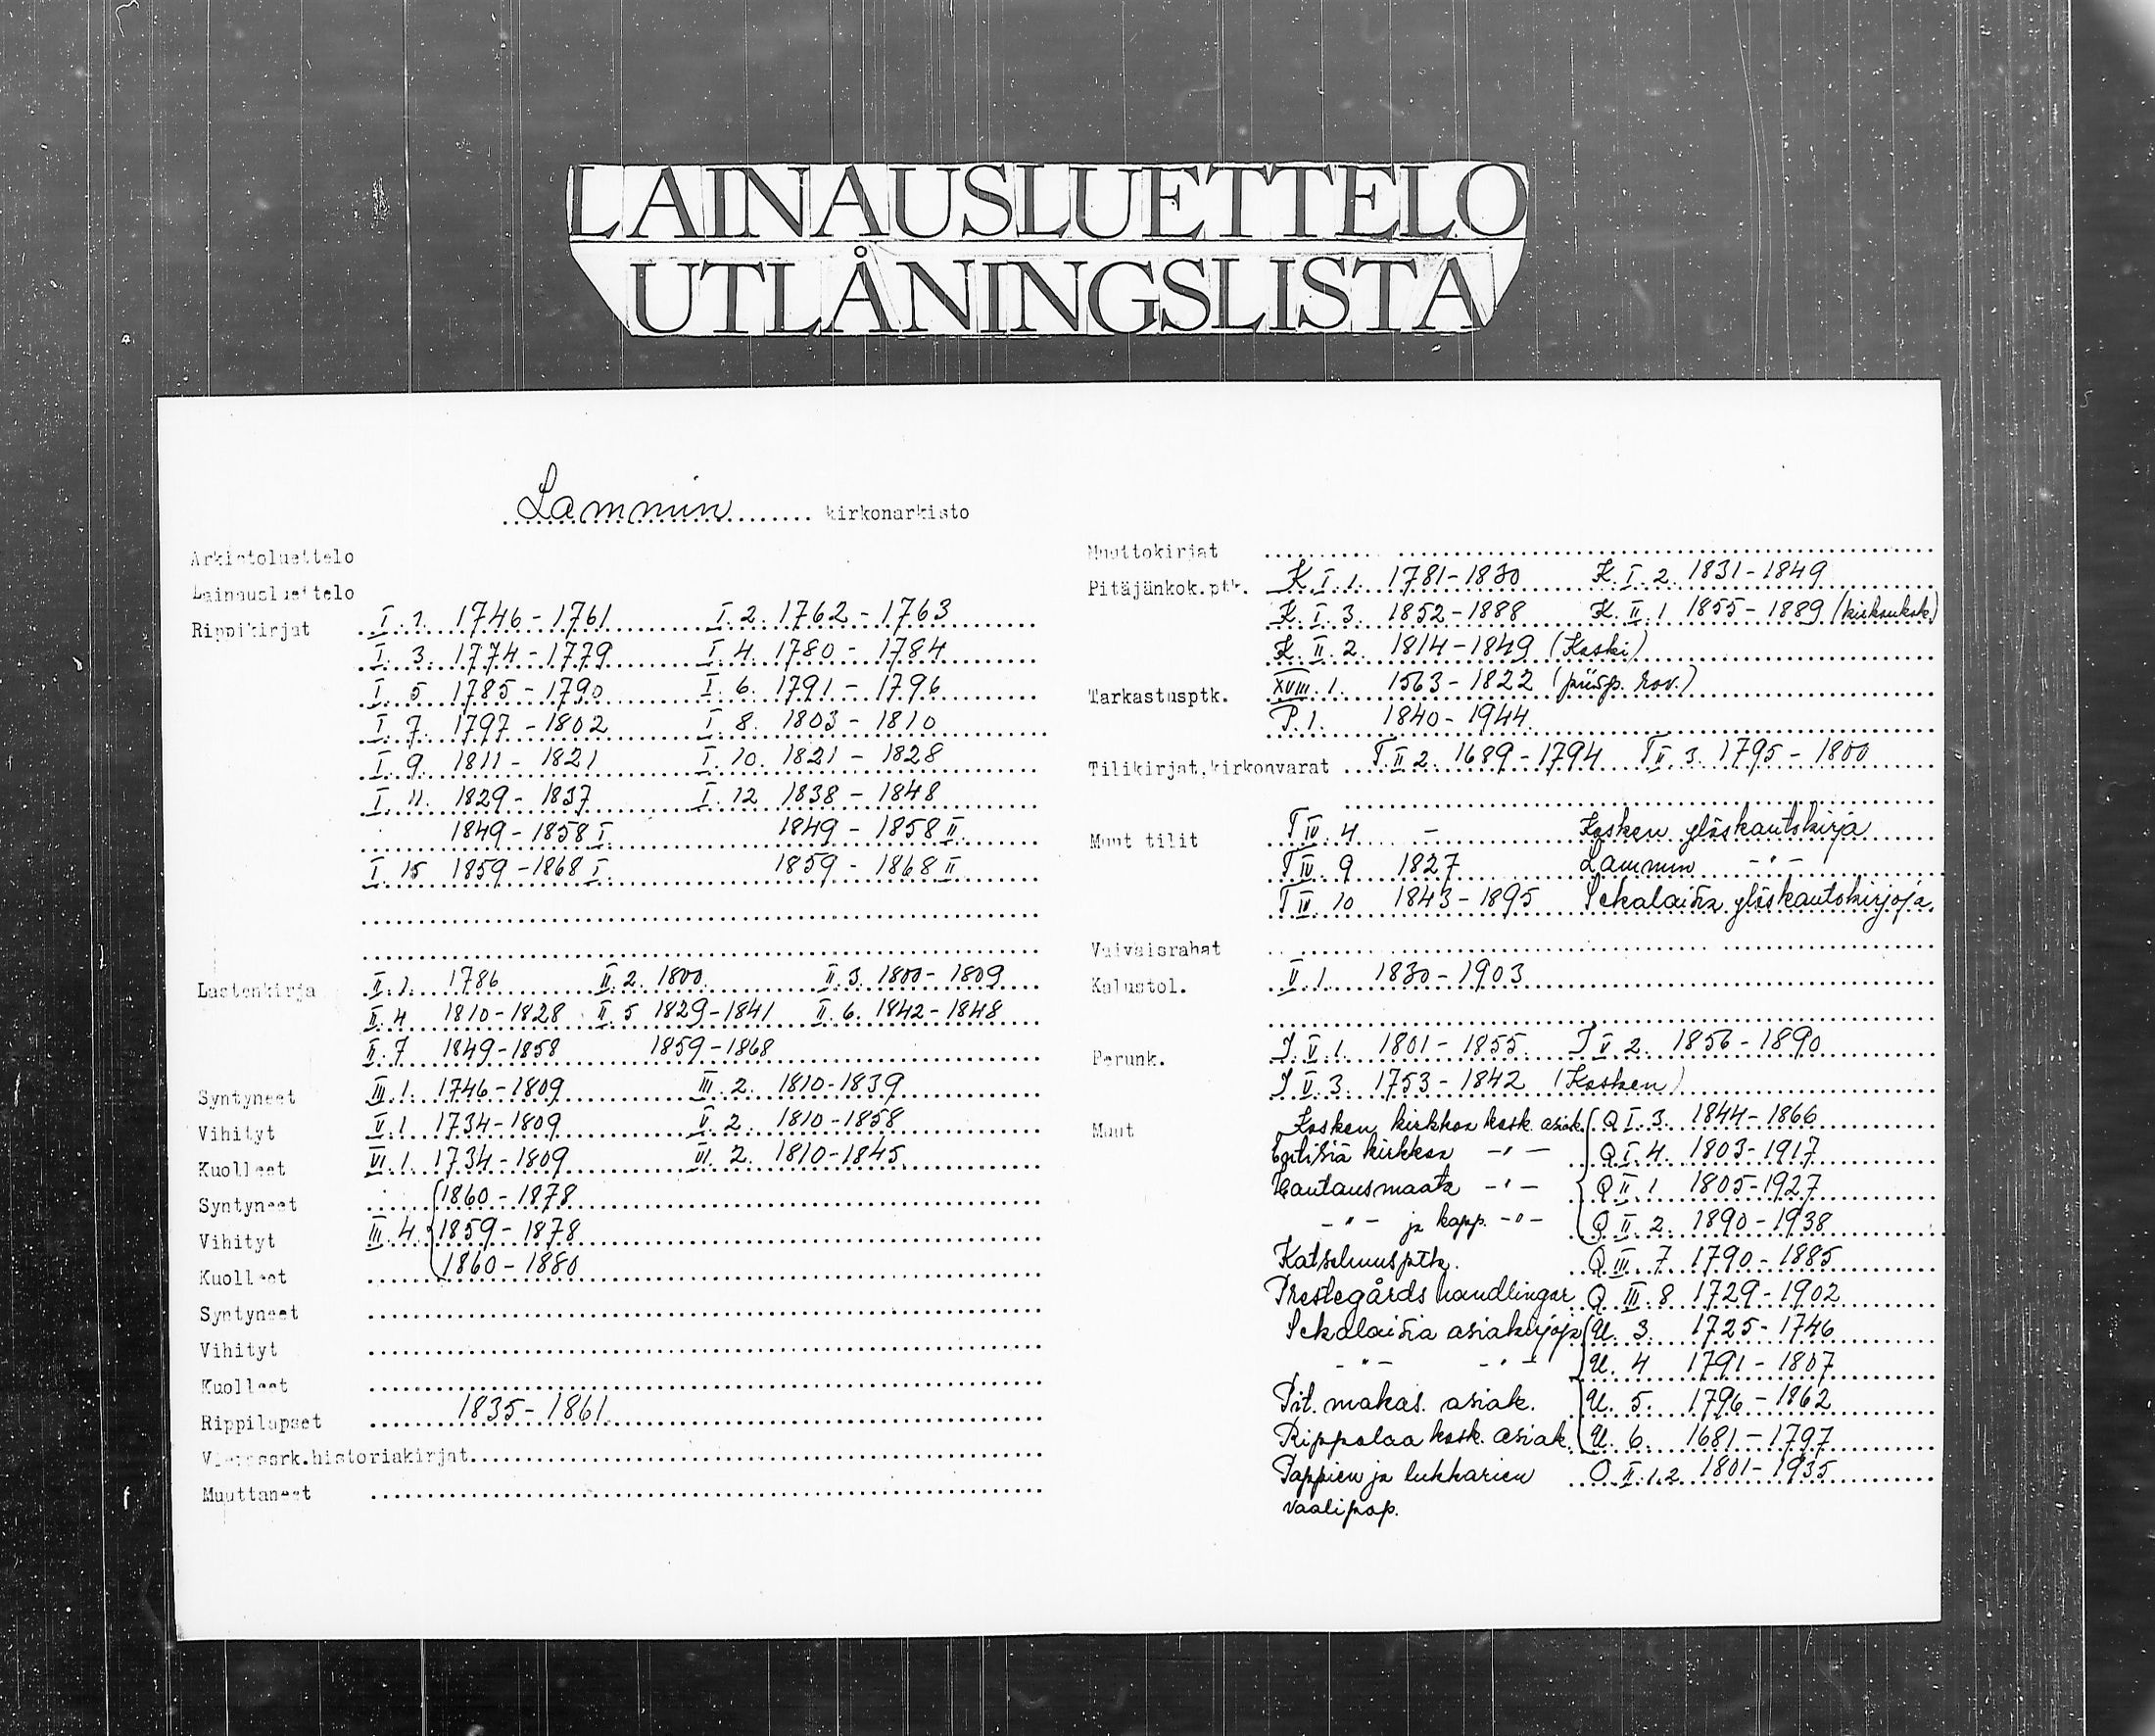 LAINAUSLUETTELO
UTLÅNINGSLISTA
Lammin kirkonarkisto
Arkistoluettelo
Lainausluettelo
Rippikirjat I. 1. 1746-1761 I. 2. 1762-1763
I. 3. 1774-1779 I. 4. 1780-1784
I. 5 1785-1790 I. 6. 1791-1796
I. 7. 1797-1802 I. 8. 1803-1810
I. 9. 1811-1821 I. 10. 1821-1828
I. 11. 1829-1837 I. 12 1838-1848
1849-1858 I. 1849-1858 II.
I. 15 1859-1868 I. 1859-1868 II
Lastenkirja II. 1. 1786 II. 2. 1800. II. 3. 1800-1809
II. 4 1810-1828 II. 5 1829-1841 II. 6. 1842-1848
II. 7 1849-1858 1859-1868
Syntyneet III. 1. 1746-1809 III. 2. 1810-1839
Vihityt V. 1 1734-1809 V. 2. 1810-1858
Kuolleet VI. 1. 1734-1809 VI. 2. 1810-1845
Syntyneet 1860-1878
Vihityt III. 4. 1859-1878
Kuolleet 1860-1880
Syntyneet
Vihityt
Kuolleet
Rippilapset 1835-1861
srk.historiakirjat
Muuttaneet
Muuttokirjat
Pitäjänkok.ptk. K. I. 1. 1781-1830 K. I. 2. 1831-1849
K. I. 3. 1852-1888 K. II. 1 1855-1889 (kirkonkok.)
K. II. 2. 1814-1849 (Koski)
Tarkastusptk. XVIII. 1. 1563-1822 (piisp. rov.)
P. 1. 1840-1944.
Tilikirjat,kirkonvarat T II 2. 1689-1794 T II. 3. 1795-1800
Muut tilit T IV. 4 - Kosken yläskantokirja
T IV. 9 1827 Lammin -"-
T IV. 10 1843-1895 Sekalaisia yläskantokirjoja.
Vaivaisrahat
Kalustol. II. 1. 1830-1903
Perunk. J. V. 1. 1801-1855 J V 2. 1856-1890
J V. 3. 1753-1842 (Kosken)
Muut Kosken kirkkoa kosk. asiak. Q I. 3. 1844-1866
Entisiä kirkkoa -"- Q I. 4. 1803-1917
Hautausmaata -"- Q II. 1 1805-1927
-"- ja kapp. -"- Q II. 2. 1890-1938
Katselmusptk. Q III. 7 1790-1885
Prestegårds handlingar Q III. 8 1729-1902
Sekalaisia asiakirjoja U. 3. 1725-1746
-"- -"- U. 4 1791-1807
Pit. makas. asiak. U. 5. 1796-1862
Pappilaa kosk. asiak. U. 6. 1681-1797
Pappien ja lukkarien O. II. 1.2 1801-1935
vaalipap.